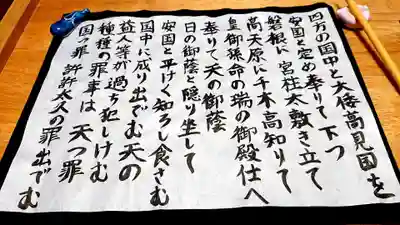 四方の国中と大倭高見国を
安国と定め奉りて下つ
磐根に宮柱太敷き立て
高天原に千木高知りて
皇御孫命の瑞の御殿仕へ
奉りて天の御蔭
日の御蔭と隠り坐して
安国と平けく知ろし食さむ
国中に成り出でむ天の
益人等が過ち犯しけむ
種種の罪事は天つ罪
国つ罪許許太久の罪出でむ